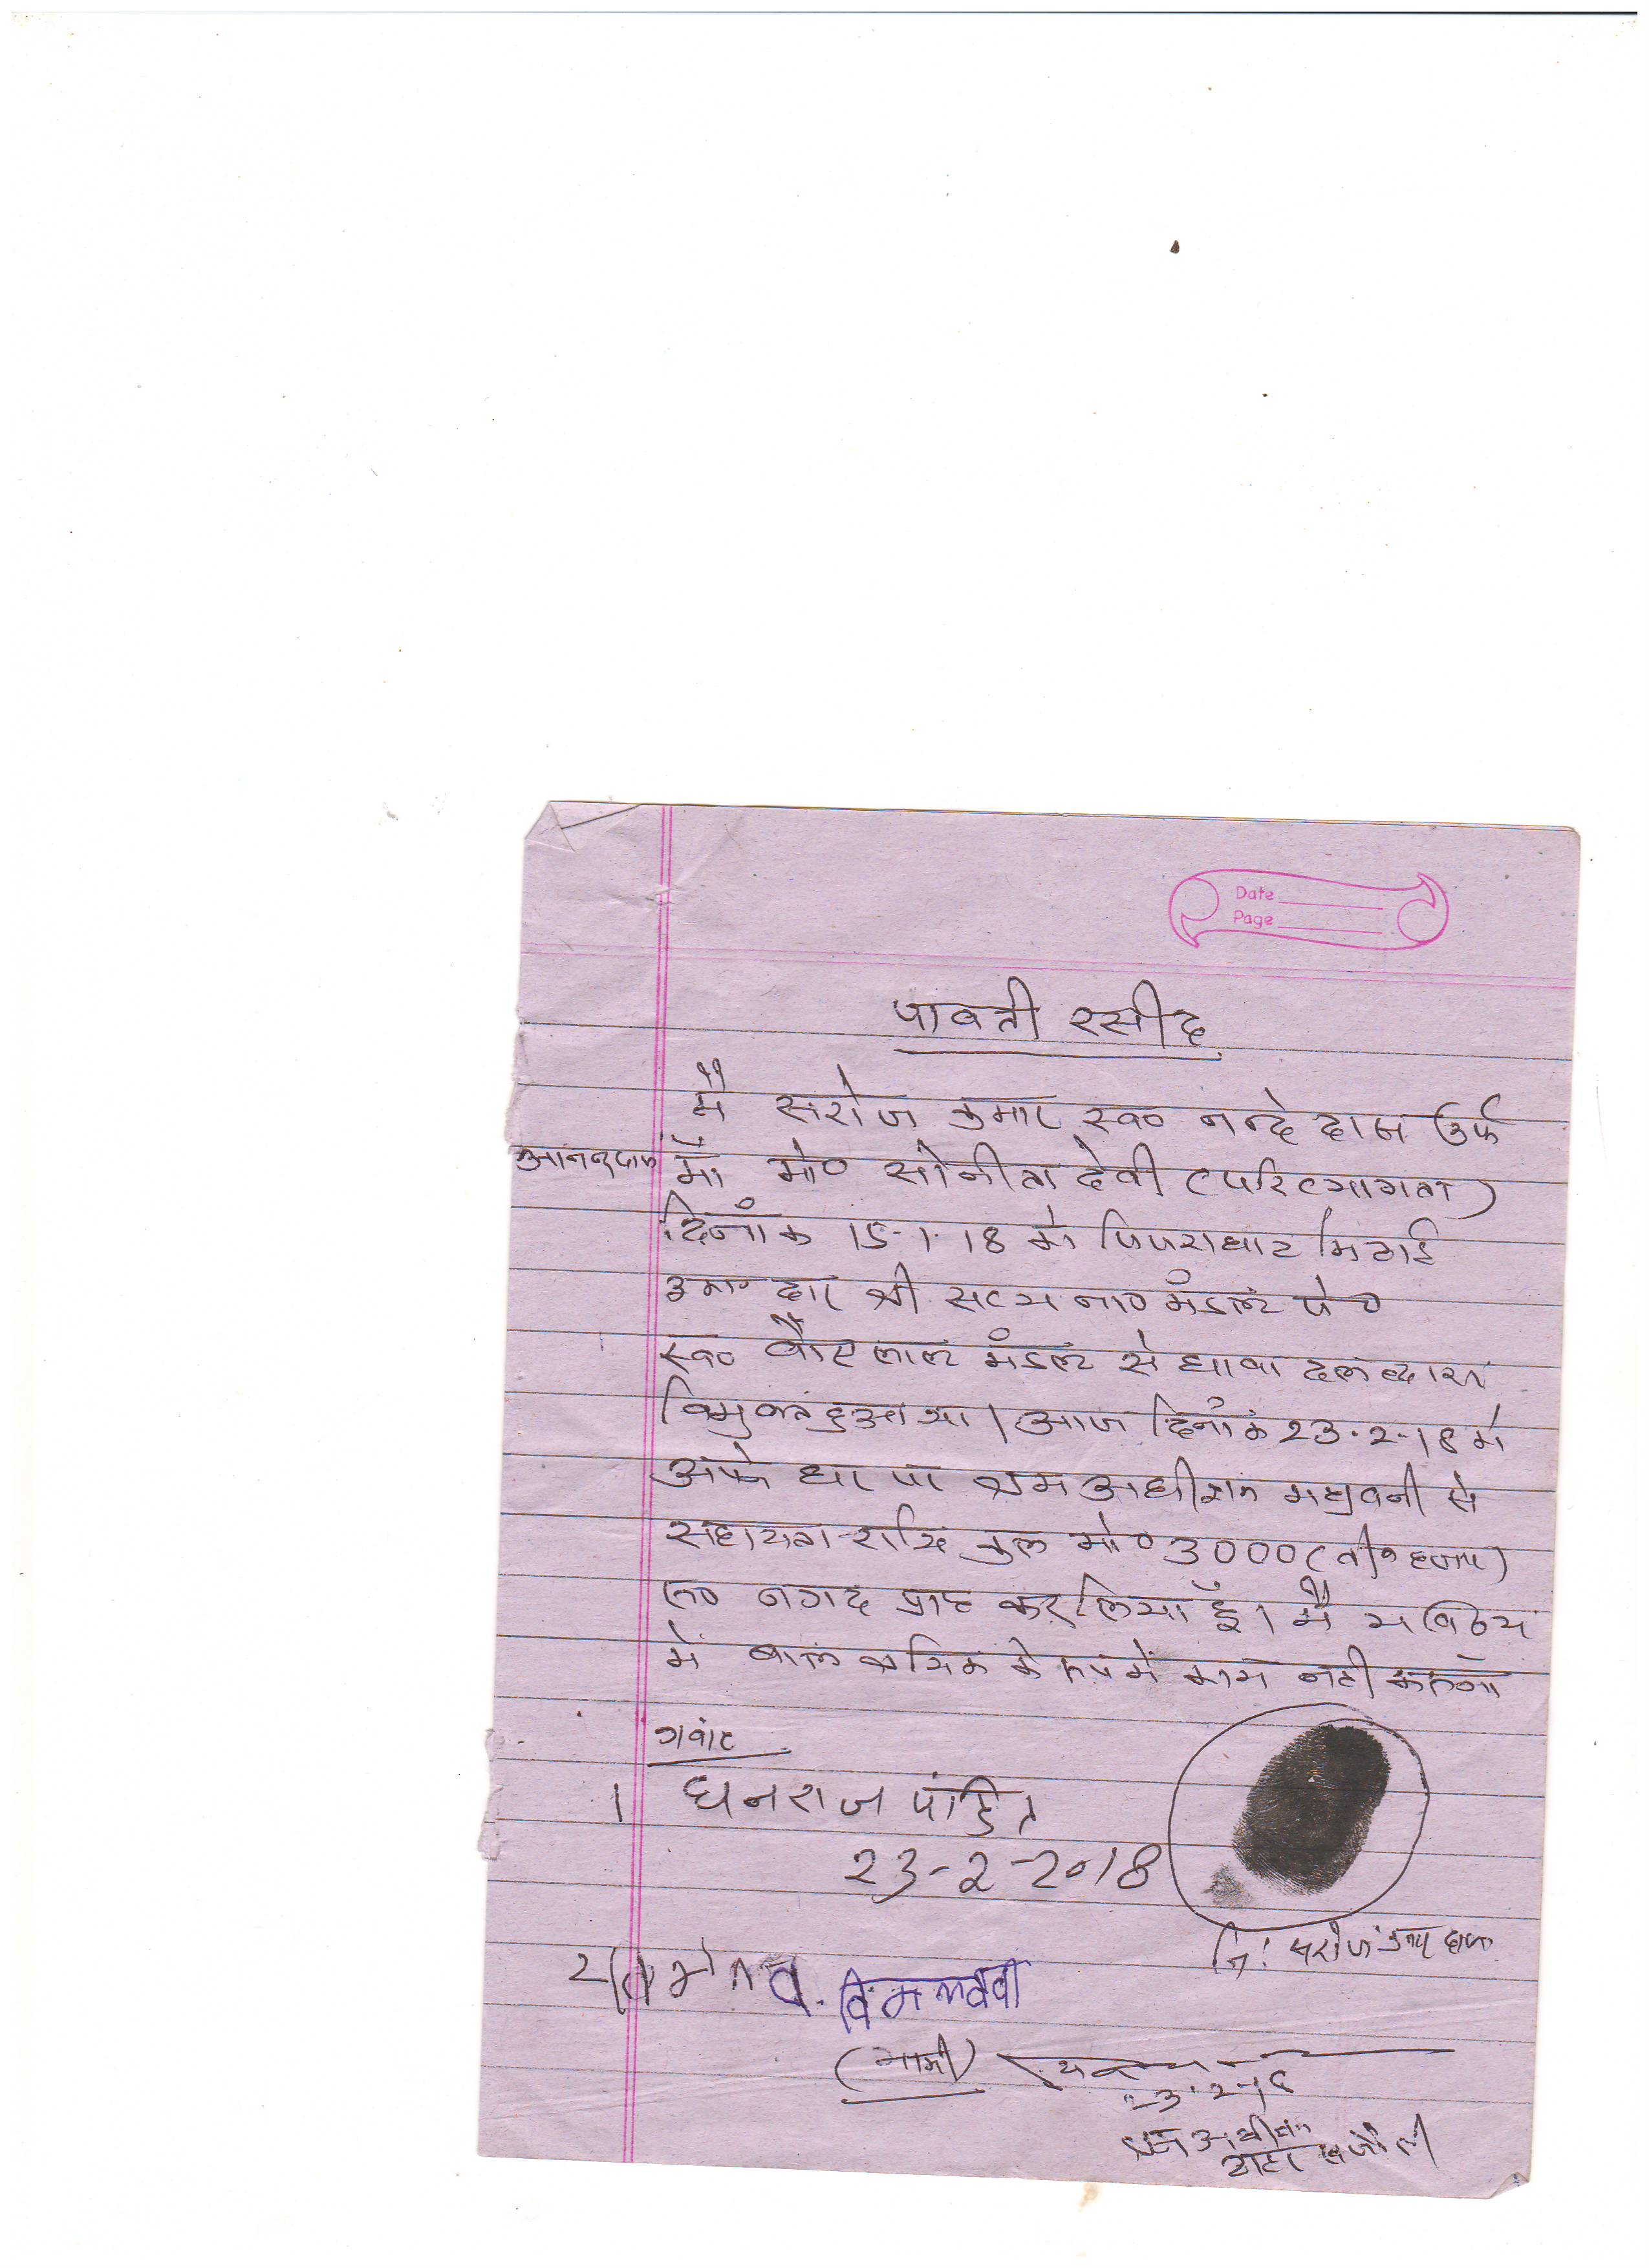 Date
Page
पावती रसीद
मैं सरोज कुमार स्व० नन्दे दास उर्फ
आनन्द दास माँ मो० सोनीता देवी (परित्यागता)
दिनाँक 15-1-18 को पिपराघाट मिठाई
दुकानदार श्री सत्य ना० मंडल पे०
स्व० लाल मंडल से धावा दल द्वारा
विमुक्त हुआ था। आज दिनाँक 23-2-18 को
अपने घर पर श्रम अधीक्षक मधुवनी से
सहायता राशि कुल मो० 3000 (तीन हजार)
रू० नगद प्राप्त कर लिया हूँ। मैं भविष्य
में बाल श्रमिक के रूप में काम नहीं करूंगा
गवाह
1 धनराज पंडित
23-2-2018
नि: सरोज कुमार दास
2 विमल देवी
(मामी)
23-2-18
श्रम अधीक्षक